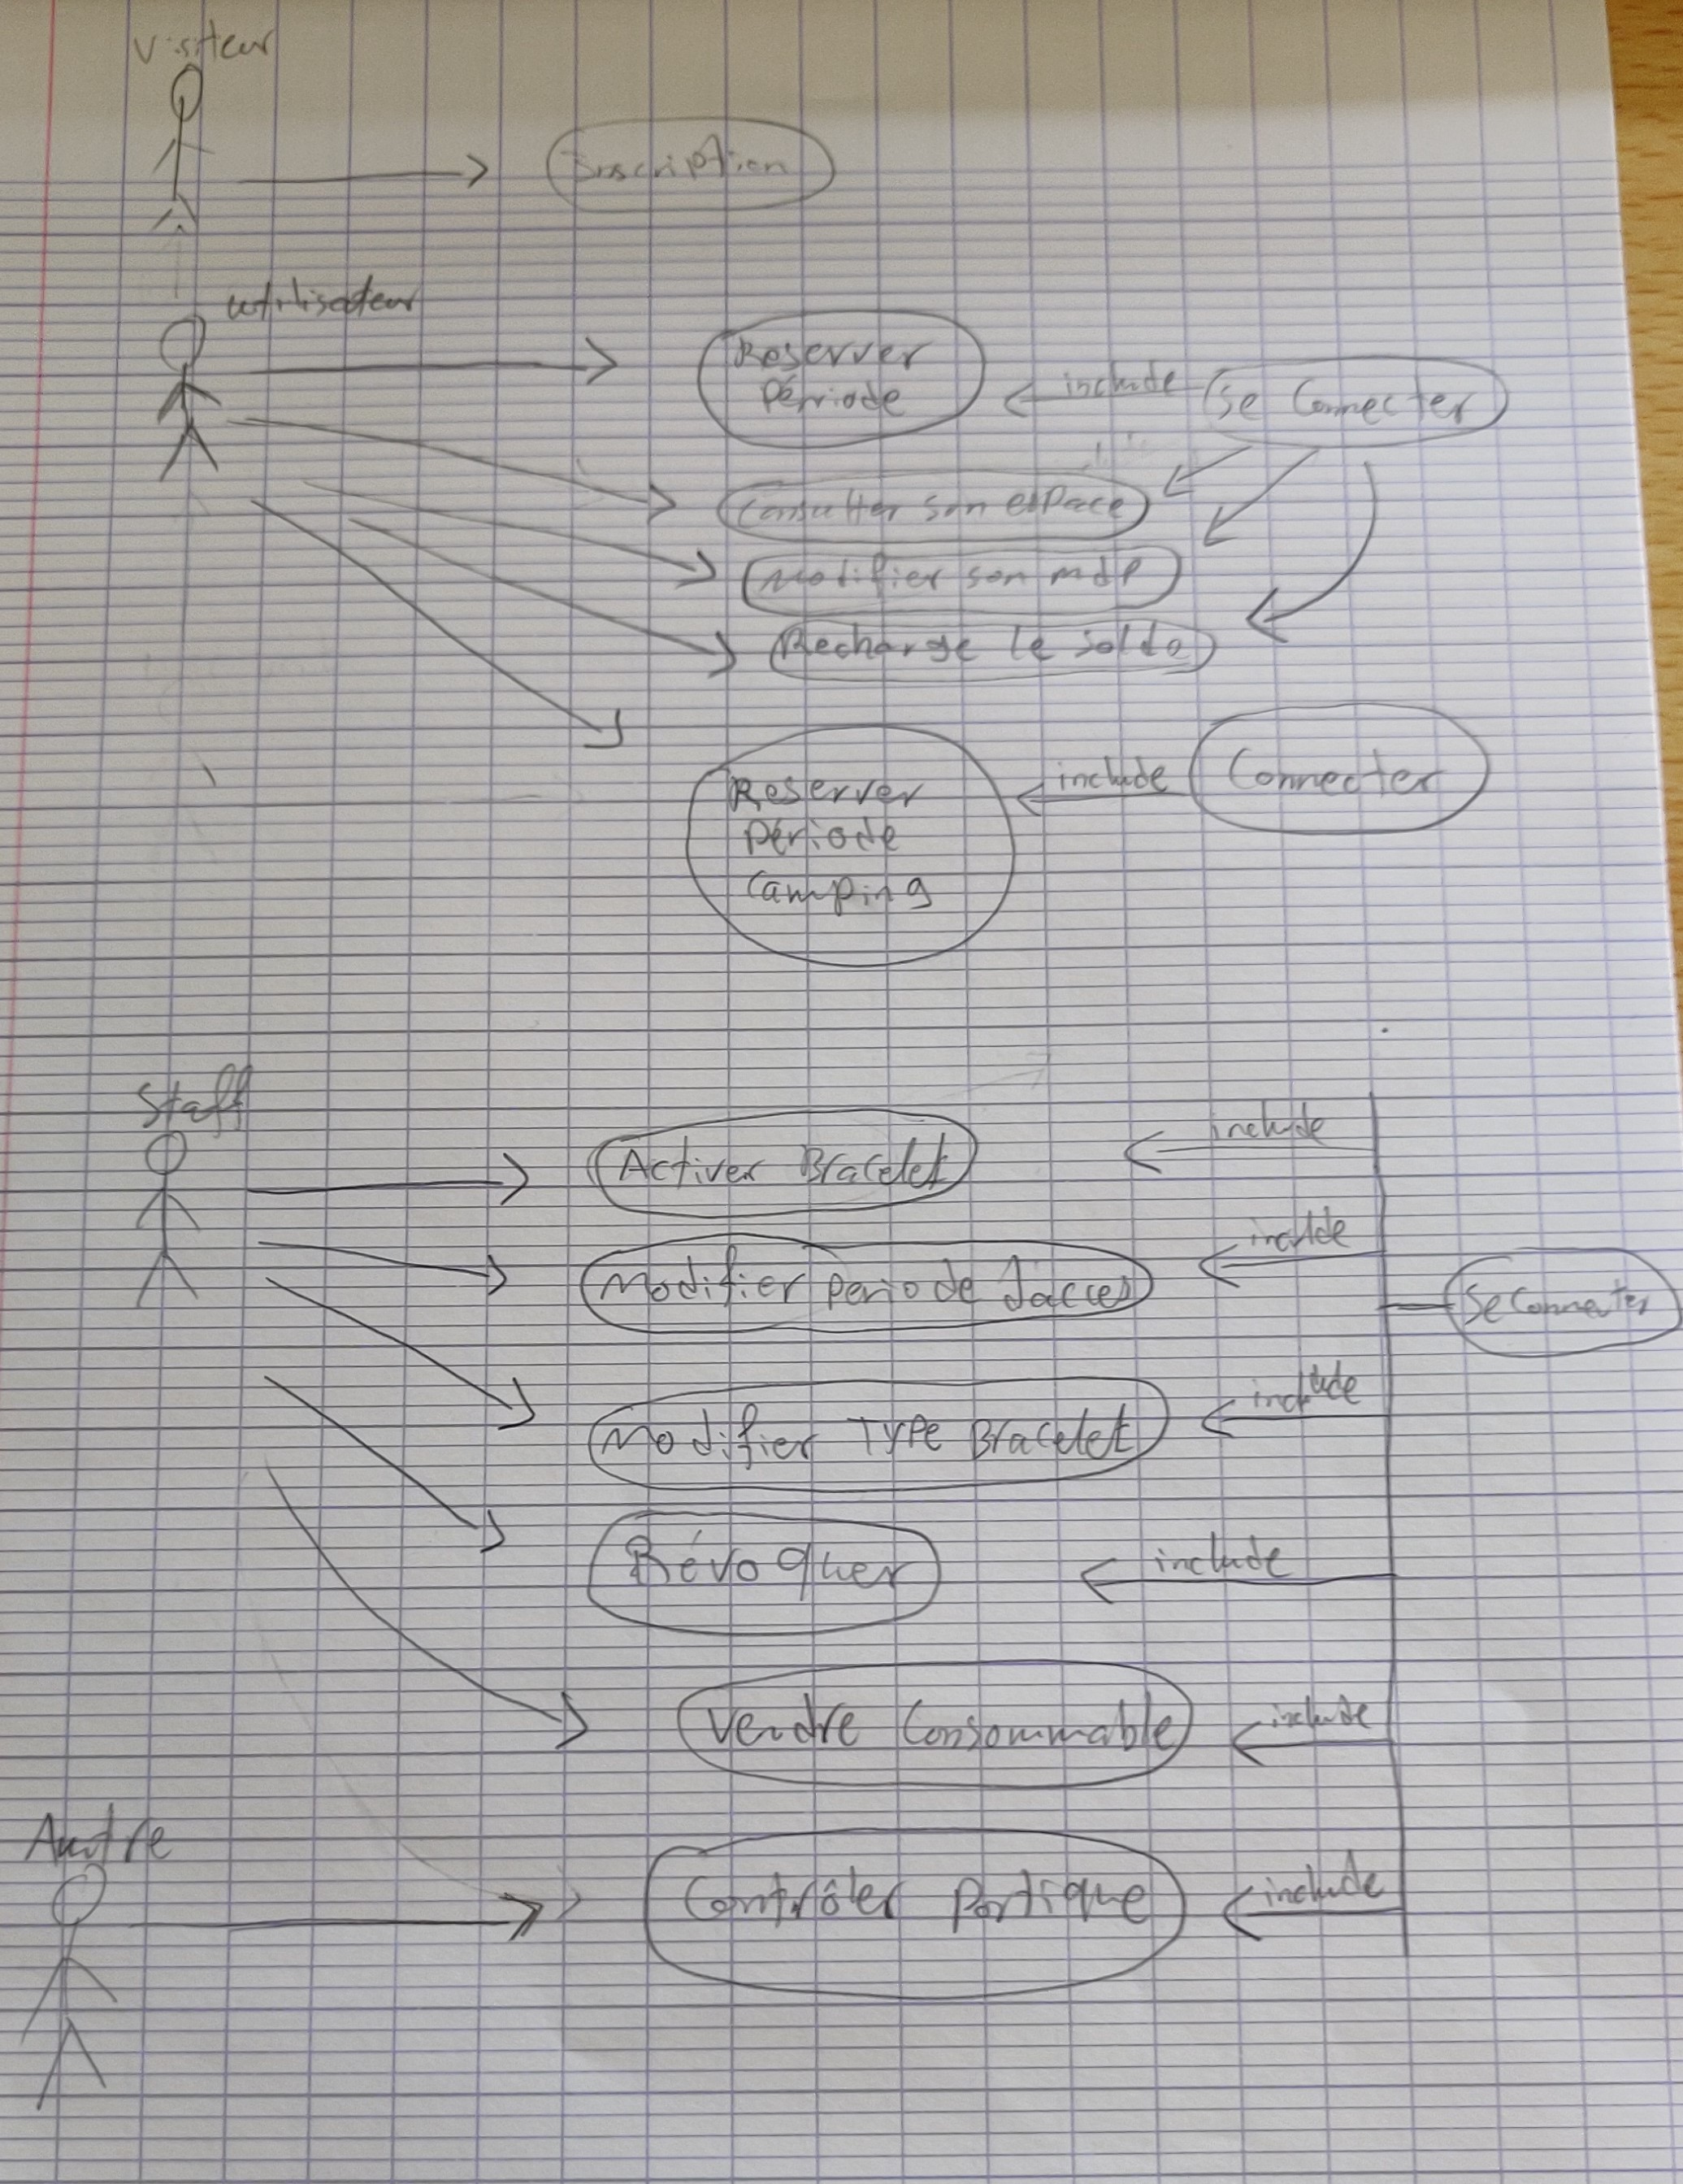 Visiteur
Inscription
utilisateur
Reserver
Période
include
Se Connecter
Consulter son espace
Modifier son mdp
Recharge le solde
Reserver
période
camping
include
Connecter
Staff
Activer Bracelet
include
Modifier periode d'acces
include
Se Connecter
Modifier Type Bracelet
include
Révoquer
include
Vendre Consommable
include
Autre
Contrôler Portique
include